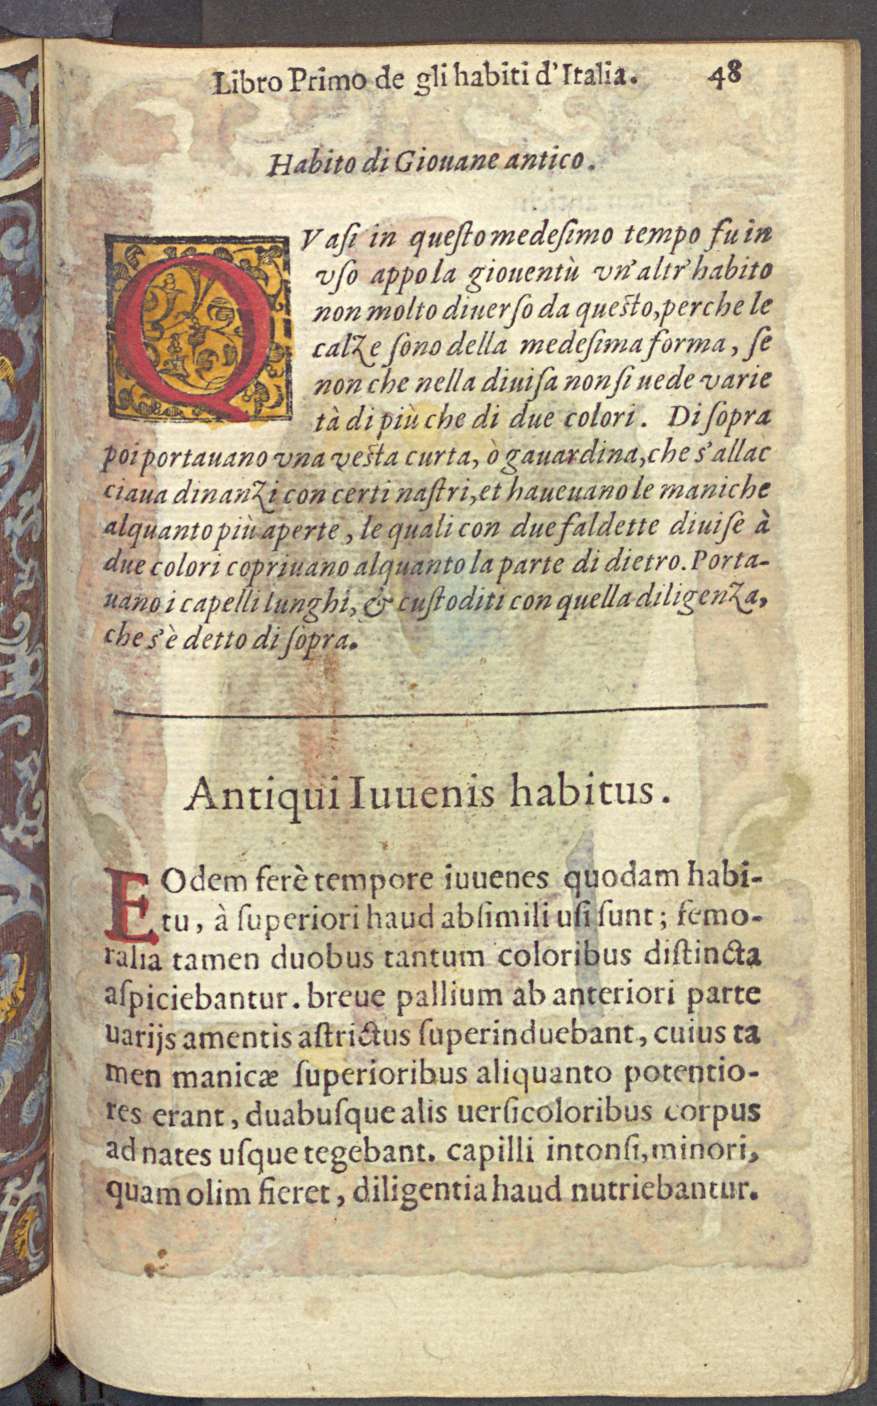 Libro Primo de gli habiti d'Italia. 48
Habito di Giouane antico.
QVaſi in queſto medeſimo tempo fu in
vſo appo la giouentù vn'altr'habito
non molto diuerſo da queſto, perche le
calze ſono della medeſima forma, ſe
non che nella diuiſa non ſi uede varie
tà di più che di due colori. Di ſopra
poi portauano vna veſta curta, ò gauardina, che s'allac
ciaua dinanzi con certi naſtri, et haueuano le maniche
alquanto più aperte, le quali con due faldette diuiſe à
due colori copriuano alquanto la parte di dietro. Porta-
uano i capelli lunghi, & cuſtoditi con quella diligenza,
che s'è detto di ſopra.
Antiqui Iuuenis habitus.
EOdem ferè tempore iuuenes quodam habi-
tu, à ſuperiori haud abſimili uſi ſunt; femo-
ralia tamen duobus tantum coloribus diſtincta
aſpiciebantur. breue pallium ab anteriori parte
uarijs amentis aſtrictus ſuperinduebant, cuius ta
men manicæ ſuperioribus aliquanto potentio-
res erant, duabuſque alis uerſicoloribus corpus
ad nates uſque tegebant. capilli intonſi, minori,
quam olim fieret, diligentia haud nutriebantur.